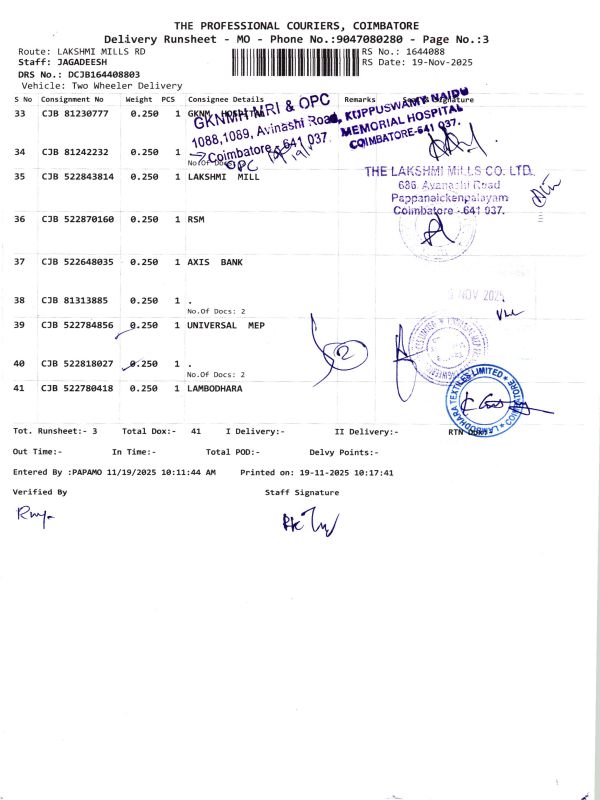 THE PROFESSIONAL COURIERS, COIMBATORE
Delivery Runsheet - MO - Phone No.:9047080280 - Page No.:3
Route: LAKSHMI MILLS RD
RS No.: 1644088
Staff: JAGADEESH
RS Date: 19-Nov-2025
DRS No.: DCJB164408803
Vehicle: Two Wheeler Delivery
S No Consignment No Weight PCS Consignee Details Remarks Signature
33 CJB 81230777 0.250 1 GKNM HOSPITAL
GKNMH MRI & OPC
1088,1089, Avinashi Road,
Coimbatore - 641 037.
OPC
KUPPUSWAMY NAIDU
MEMORIAL HOSPITAL
COIMBATORE-641 037.
34 CJB 81242232 0.250 1
No.Of Docs:
35 CJB 522843814 0.250 1 LAKSHMI MILL
THE LAKSHMI MILLS CO. LTD.
686, Avanashi Road
Pappanaickenpalayam
Coimbatore - 641 037.
36 CJB 522870160 0.250 1 RSM
37 CJB 522648035 0.250 1 AXIS BANK
38 CJB 81313885 0.250 1 .
No.Of Docs: 2
NOV 2025
39 CJB 522784856 0.250 1 UNIVERSAL MEP
2
40 CJB 522818027 0.250 1 .
No.Of Docs: 2
41 CJB 522780418 0.250 1 LAMBODHARA
LAMBODHARA TEXTILES LIMITED ★ COIMBATORE ★
Tot. Runsheet:- 3 Total Dox:- 41 I Delivery:- II Delivery:- RTN Dox:-
Out Time:- In Time:- Total POD:- Delvy Points:-
Entered By :PAPAMO 11/19/2025 10:11:44 AM Printed on: 19-11-2025 10:17:41
Verified By Staff Signature